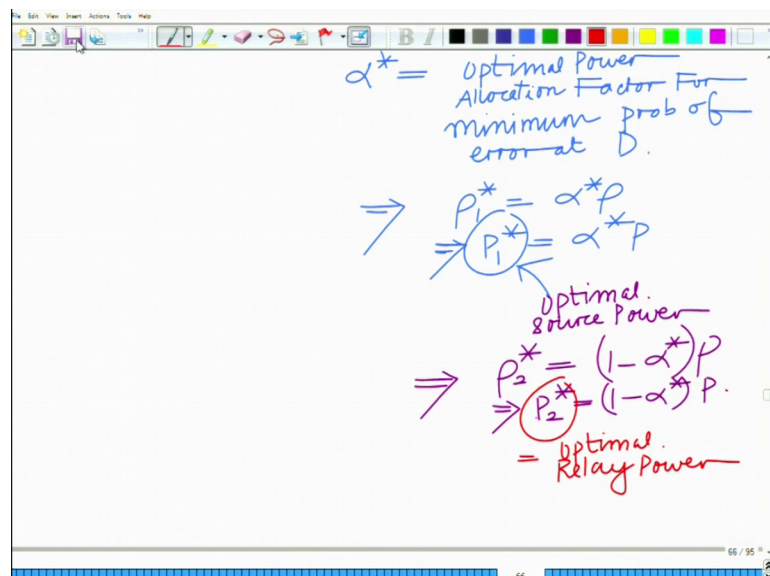 File Edit View Insert Actions Tools Help
B I
α* = Optimal Power
Allocation Factor For
minimum prob of
error at D.
⇒ ρ₁* = α*ρ
⇒ P₁* = α*P
Optimal
Source Power
⇒ ρ₂* = (1-α*)ρ
⇒ P₂* = (1-α*) P.
= Optimal
Relay Power
66 / 95
66